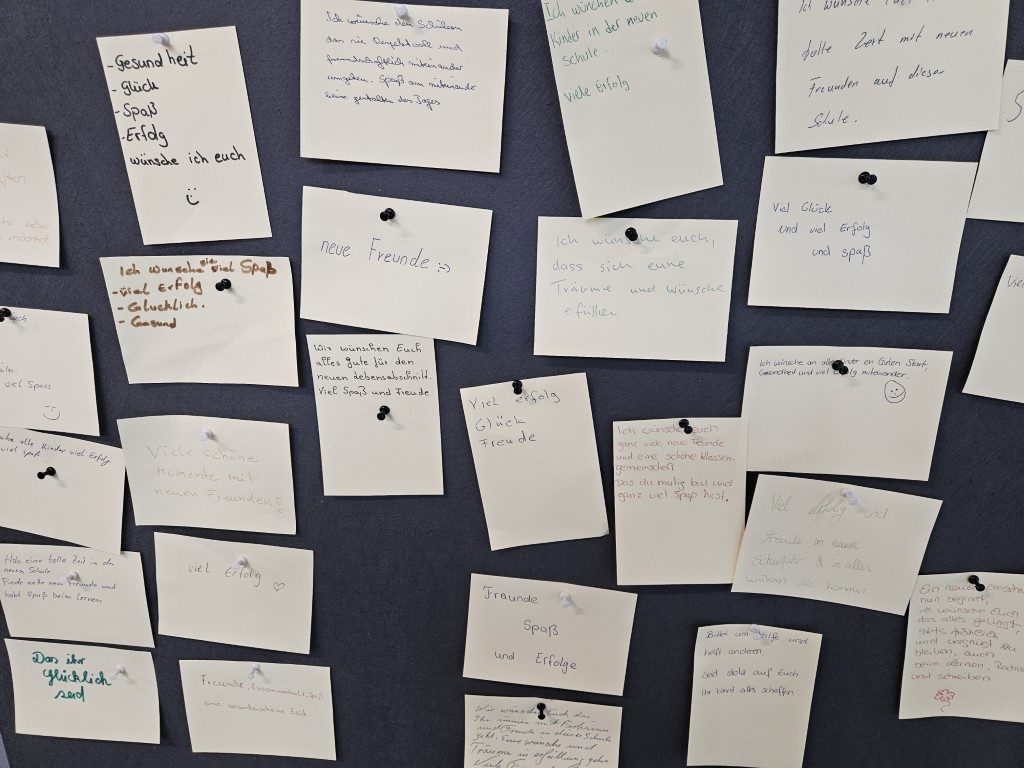 -Gesundheit
-Glück
-Spaß
-Erfolg
wünsche ich euch
Ich wünsche den Schülern
das sie Respektvoll und
freundschaftlich miteinander
umgehen. Spaß am miteinander
beim gestalten des Tages
Ich wünschen
Kinder in der neuen
Schule.
viele Erfolg
Ich wünsche
tolle Zeit mit neuen
Freunden auf dieser
Schule.
neue Freunde :-)
Ich wünsche euch,
dass sich eure
Träume und Wünsche
erfüllen
Viel Glück
und viel Erfolg
und spaß
Ich wünsche sie viel Spaß
-viel Erfolg
- Glücklich.
- Gesund
Wir wünschen Euch
alles Gute für den
neuen Lebensabschnitt.
Viel Spaß und Freude
Viel erfolg
Glück
Freude
Ich wünsche an alle Kinder ein Guten Start,
Gesundheit und viel Erfolg miteinander.
Ich wünsche euch
ganz viele neue Freunde
und eine schöne Klassen-
gemeinschaft.
Das du mutig bist und
ganz viel Spaß hast.
viel Spass
alle Kinder viel Erfolg
viel spaß
Viele schöne
Momente mit
neuen Freunden!
Viel Erfolg und
Freude im neuen
Schuljahr & in allen
weiteren die kommen
Hab eine tolle Zeit in der
neuen Schule.
Finde nette neue Freunde und
habt Spaß beim Lernen
viel Erfolg
Freunde
Spaß
und Erfolge
Bittet um Hilfe und
helft andern.
Seid stolz auf Euch
Ihr könnt alles schaffen.
Ein
nun beginnt,
ich wünsche Euch
das alles gelingt,
stets
und vergnügt
bleiben, auch
beim Lernen,
und schreiben
Das ihr
glücklich
seid
Freunde, Zusammenhalt, Spaß
eine wunderschöne Zeit
Wir wünschen Euch das
Ihr immer mit Frohsinn
und Freude in diese Schule
geht. Eure Wünsche und
Träume in erfüllung gehen.
Viele